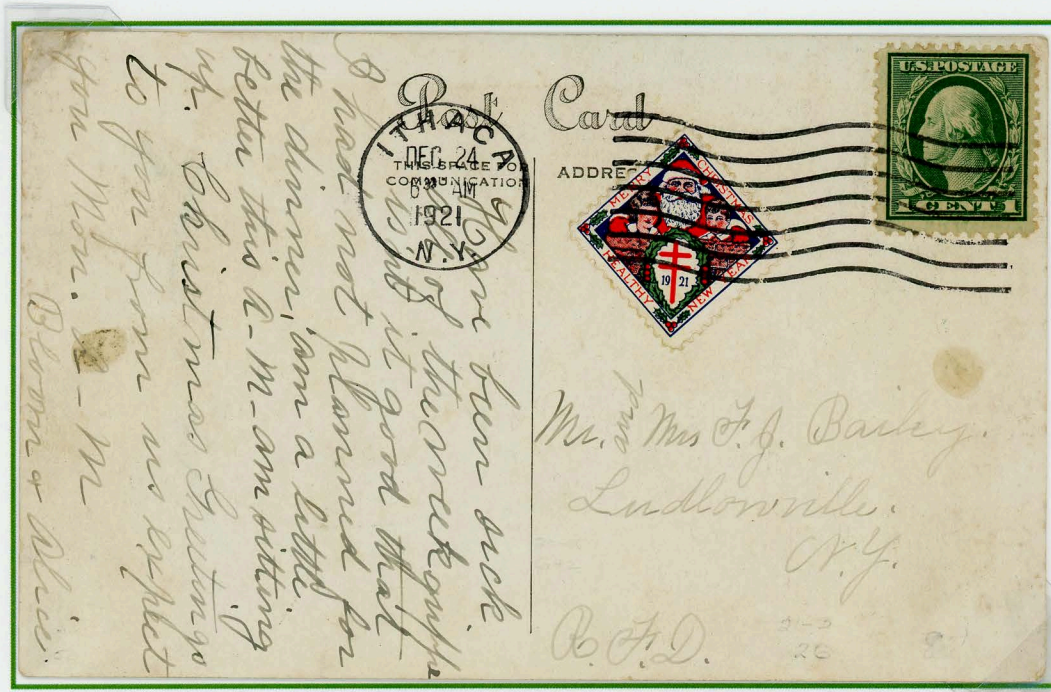 Post Card
THIS SPACE FOR
COMMUNICATION
ADDRE
ITHACA
DEC 24
AM
1921
N.Y.
U.S. POSTAGE
1 CENT 1
MERRY CHRISTMAS
HEALTHY NEW YEAR
19 21
Have been sick
all the week grippe
isn't it good that
I had not planned for
the dinner, am a little
better this A-M-am sitting
up. Christmas Greetings
to you from us expect
you Mon. A-M
Bloom & Alice
Mr. and Mrs F. J. Bailey.
Ludlowville.
N.Y.
R.F.D.